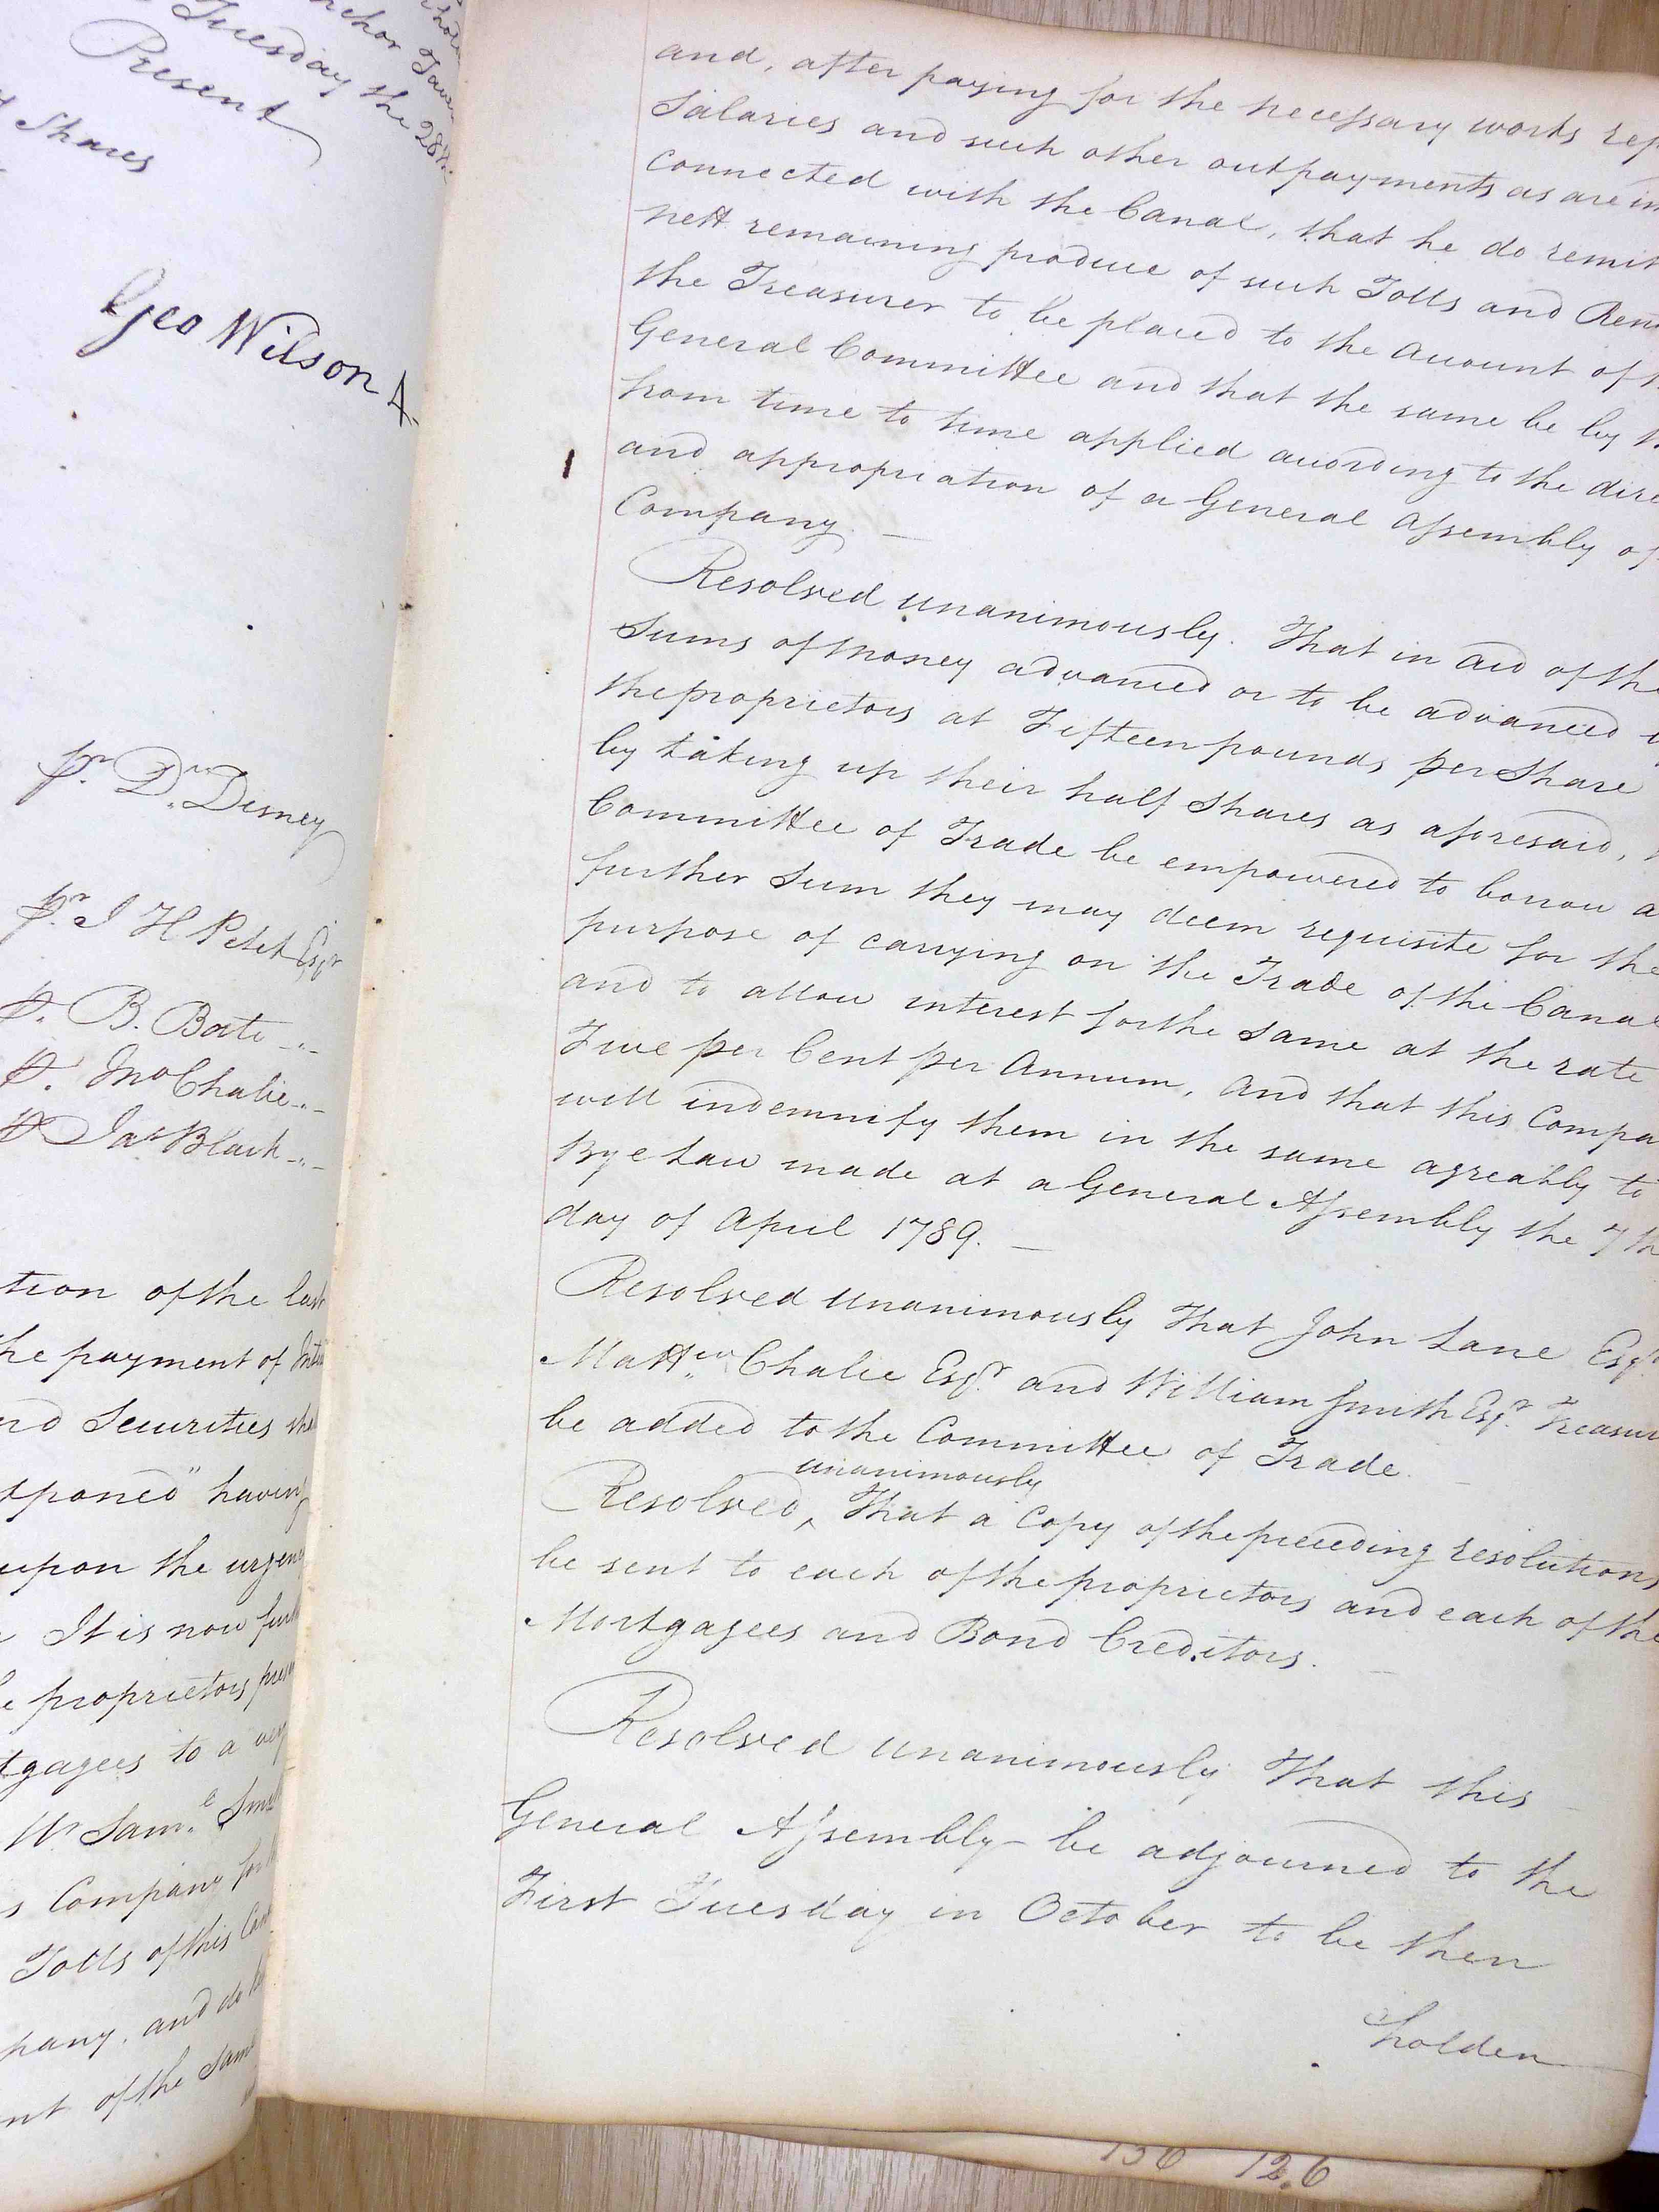 Tuesday the 28th
Present
Shares
Geo Wilson
pr. Dr. Disney
pr. J H Petit Esqr
p. B. Bate
p. Jno Chalie
p Jas Black
tion of the last
he payment of
nd Securities
tponed" having
upon the urgen
It is now
proprietors
tgagees to a
Mr Saml.
s Company
Tolls of this
pany, and do
nt of the same
and, after paying for the necessary works rep
Salaries and such other outpayments as are im
connected with the Canal, that he do remit
nett remaining produce of such Tolls and Ren
the Treasurer to be placed to the account of
General Committee and that the same be by
from time to time applied according to the dire
and appropriation of a General Assembly of
Company. —
Resolved unanimously. That in aid of the
Sums of money advanced or to be advanced
the proprietors at Fifteen pounds per Share
by taking up their half Shares as aforesaid,
Committee of Trade be empowered to borrow a
further Sum they may deem requisite for the
purpose of carrying on the Trade of the Canal
and to allow interest for the Same at the rate
Five per Cent per Annum, And that this Compa
will indemnify them in the same agreably to
Bye Law made at a General Assembly the 7th
day of April 1789. —
Resolved unanimously That John Lane Esqr.
Mattw. Chalie Esqr. and William Smith Esqr. Treasur
be added to the Committee of Trade. —
unanimously
Resolved ‸ That a Copy of the preceding resolutions
be sent to each of the proprietors and each of the
Mortgagees and Bond Creditors. —
Resolved unanimously That this
General Assembly be adjourned to the
First Tuesday in October to be then
holden
136 12.6